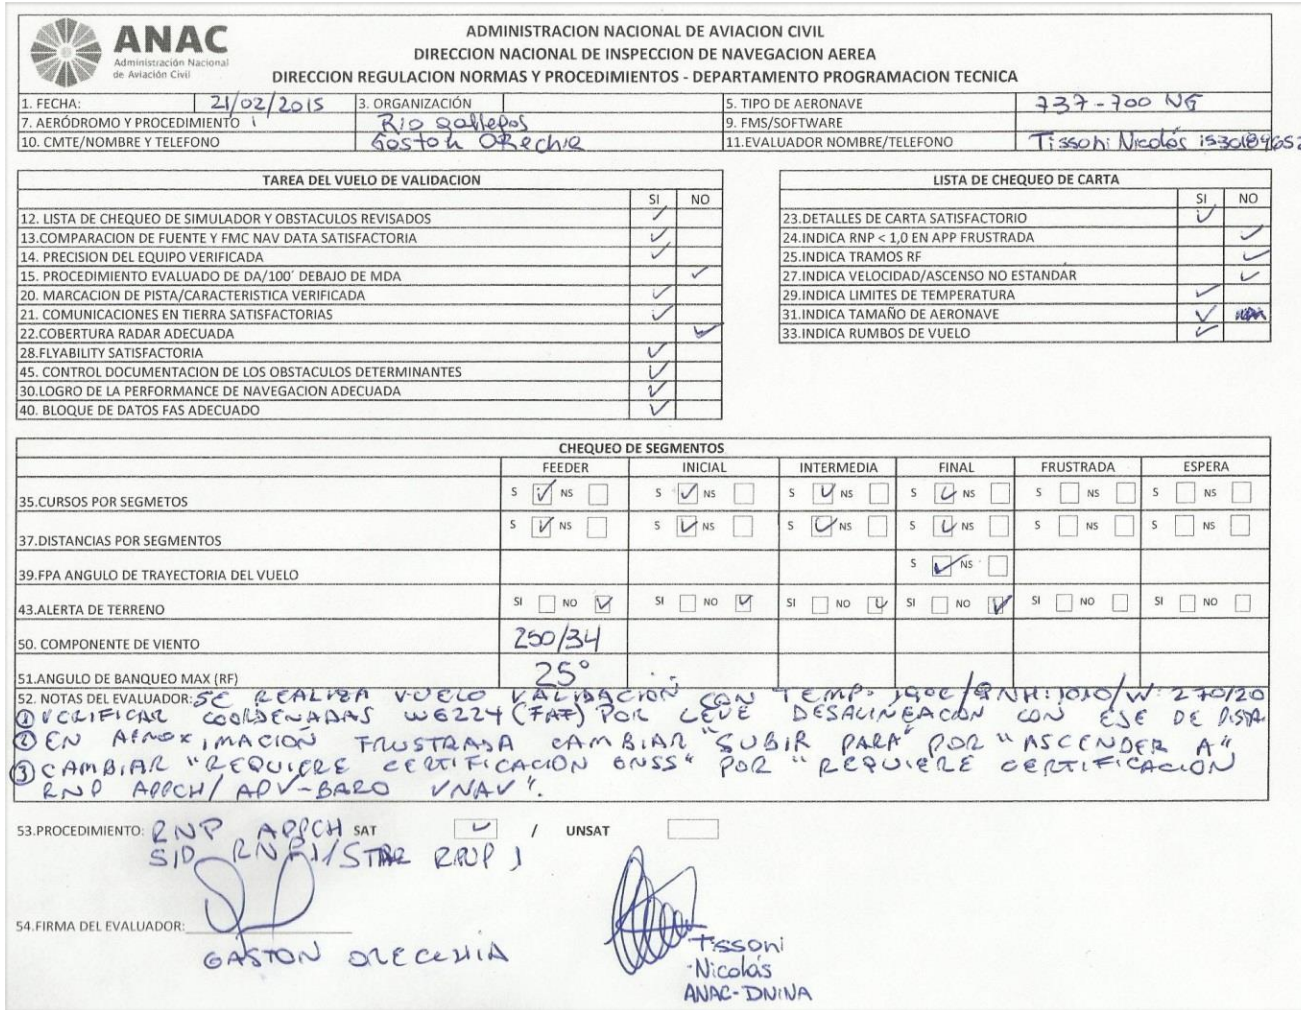 ANAC
Administración Nacional
de Aviación Civil
ADMINISTRACION NACIONAL DE AVIACION CIVIL
DIRECCION NACIONAL DE INSPECCION DE NAVEGACION AEREA
DIRECCION REGULACION NORMAS Y PROCEDIMIENTOS - DEPARTAMENTO PROGRAMACION TECNICA
1. FECHA: 21/02/2015 3. ORGANIZACIÓN 5. TIPO DE AERONAVE 737-700 NG
7. AERÓDROMO Y PROCEDIMIENTO Rio gallegos 9. FMS/SOFTWARE
10. CMTE/NOMBRE Y TELEFONO Gaston ORechia 11.EVALUADOR NOMBRE/TELEFONO Tissoni Nicolás
TAREA DEL VUELO DE VALIDACION
SI NO
12. LISTA DE CHEQUEO DE SIMULADOR Y OBSTACULOS REVISADOS ✓
13.COMPARACION DE FUENTE Y FMC NAV DATA SATISFACTORIA ✓
14. PRECISION DEL EQUIPO VERIFICADA ✓
15. PROCEDIMIENTO EVALUADO DE DA/100´ DEBAJO DE MDA ✓
20. MARCACION DE PISTA/CARACTERISTICA VERIFICADA ✓
21. COMUNICACIONES EN TIERRA SATISFACTORIAS ✓
22.COBERTURA RADAR ADECUADA ✓
28.FLYABILITY SATISFACTORIA ✓
45. CONTROL DOCUMENTACION DE LOS OBSTACULOS DETERMINANTES ✓
30.LOGRO DE LA PERFORMANCE DE NAVEGACION ADECUADA ✓
40. BLOQUE DE DATOS FAS ADECUADO ✓
LISTA DE CHEQUEO DE CARTA
SI NO
23.DETALLES DE CARTA SATISFACTORIO ✓
24.INDICA RNP < 1,0 EN APP FRUSTRADA ✓
25.INDICA TRAMOS RF ✓
27.INDICA VELOCIDAD/ASCENSO NO ESTANDAR ✓
29.INDICA LIMITES DE TEMPERATURA ✓
31.INDICA TAMAÑO DE AERONAVE ✓
33.INDICA RUMBOS DE VUELO ✓
CHEQUEO DE SEGMENTOS
FEEDER INICIAL INTERMEDIA FINAL FRUSTRADA ESPERA
35.CURSOS POR SEGMETOS S ✓ NS S ✓ NS S ✓ NS S ✓ NS S NS S NS
37.DISTANCIAS POR SEGMENTOS S ✓ NS S ✓ NS S ✓ NS S ✓ NS S NS S NS
39.FPA ANGULO DE TRAYECTORIA DEL VUELO S ✓ NS
43.ALERTA DE TERRENO SI NO ✓ SI NO ✓ SI NO ✓ SI NO ✓ SI NO SI NO
50. COMPONENTE DE VIENTO 250/34
51.ANGULO DE BANQUEO MAX (RF) 25°
52. NOTAS DEL EVALUADOR: SE REALIZA VUELO VALIDACION CON TEMP: 19ºC/QNH:1010/W: 270/20
① VERIFICAR COORDENADAS WG224 (FAF) POR LEVE DESALINEACION CON EJE DE PISTA
② EN APROXIMACION FRUSTRADA CAMBIAR "SUBIR PARA" POR "ASCENDER A"
③ CAMBIAR "REQUIERE CERTIFICACION GNSS" POR "REQUIERE CERTIFICACION
RNP APPCH/ APV-BARO VNAV".
53.PROCEDIMIENTO: RNP APPCH SAT ✓ / UNSAT
SID RNP1/STAR RNP 1
54.FIRMA DEL EVALUADOR:
GASTON ORECCHIA
Tissoni
Nicolás
ANAC-DNINA